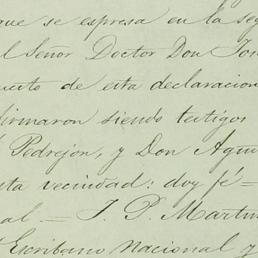 que se espresa en la seg
l Señor Doctor Don Jos
puesto de esta declaracion
firmaron siendo testigos
Pedrejon, y Don Agu
sta vecindad: doy fé =
al = J. P. Martin
Escribano Nacional y